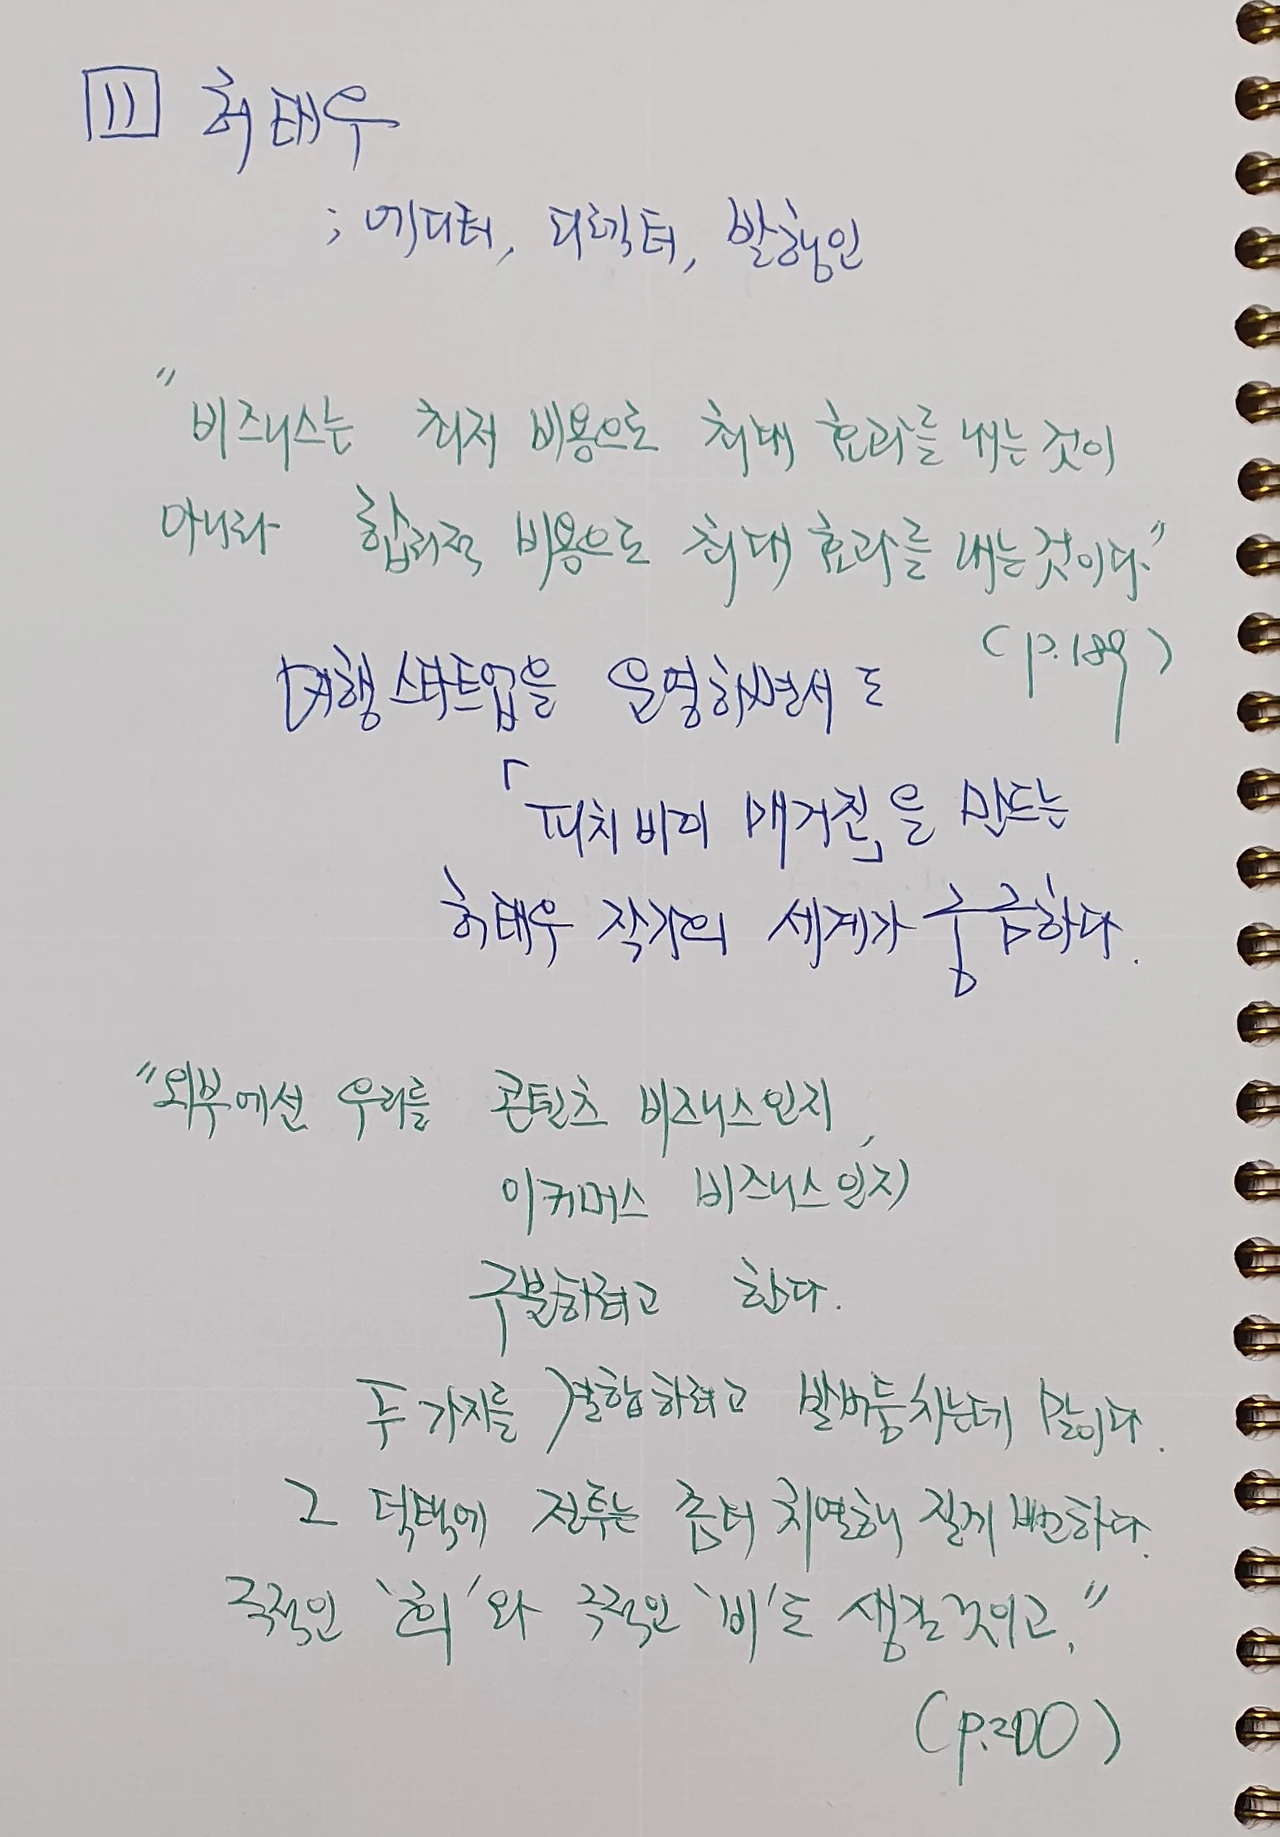 11 허태우
; 에디터, 디렉터, 발행인
"비즈니스는 최저 비용으로 최대 효과를 내는 것이
아니라 합리적 비용으로 최대 효과를 내는 것이다."
(p.189)
여행 스타트업을 운영하면서도
「피치 바이 매거진」을 만드는
허태우 작가의 세계가 궁금하다.
"외부에선 우리를 콘텐츠 비즈니스인지,
이커머스 비즈니스인지
구분하려고 한다.
두 가지를 결합하려고 발버둥치는데 말이다.
그 덕택에 전투는 좀 더 치열해질게 뻔하다.
극적인 '희'와 극적인 '비'도 생길 것이고."
(p.200)